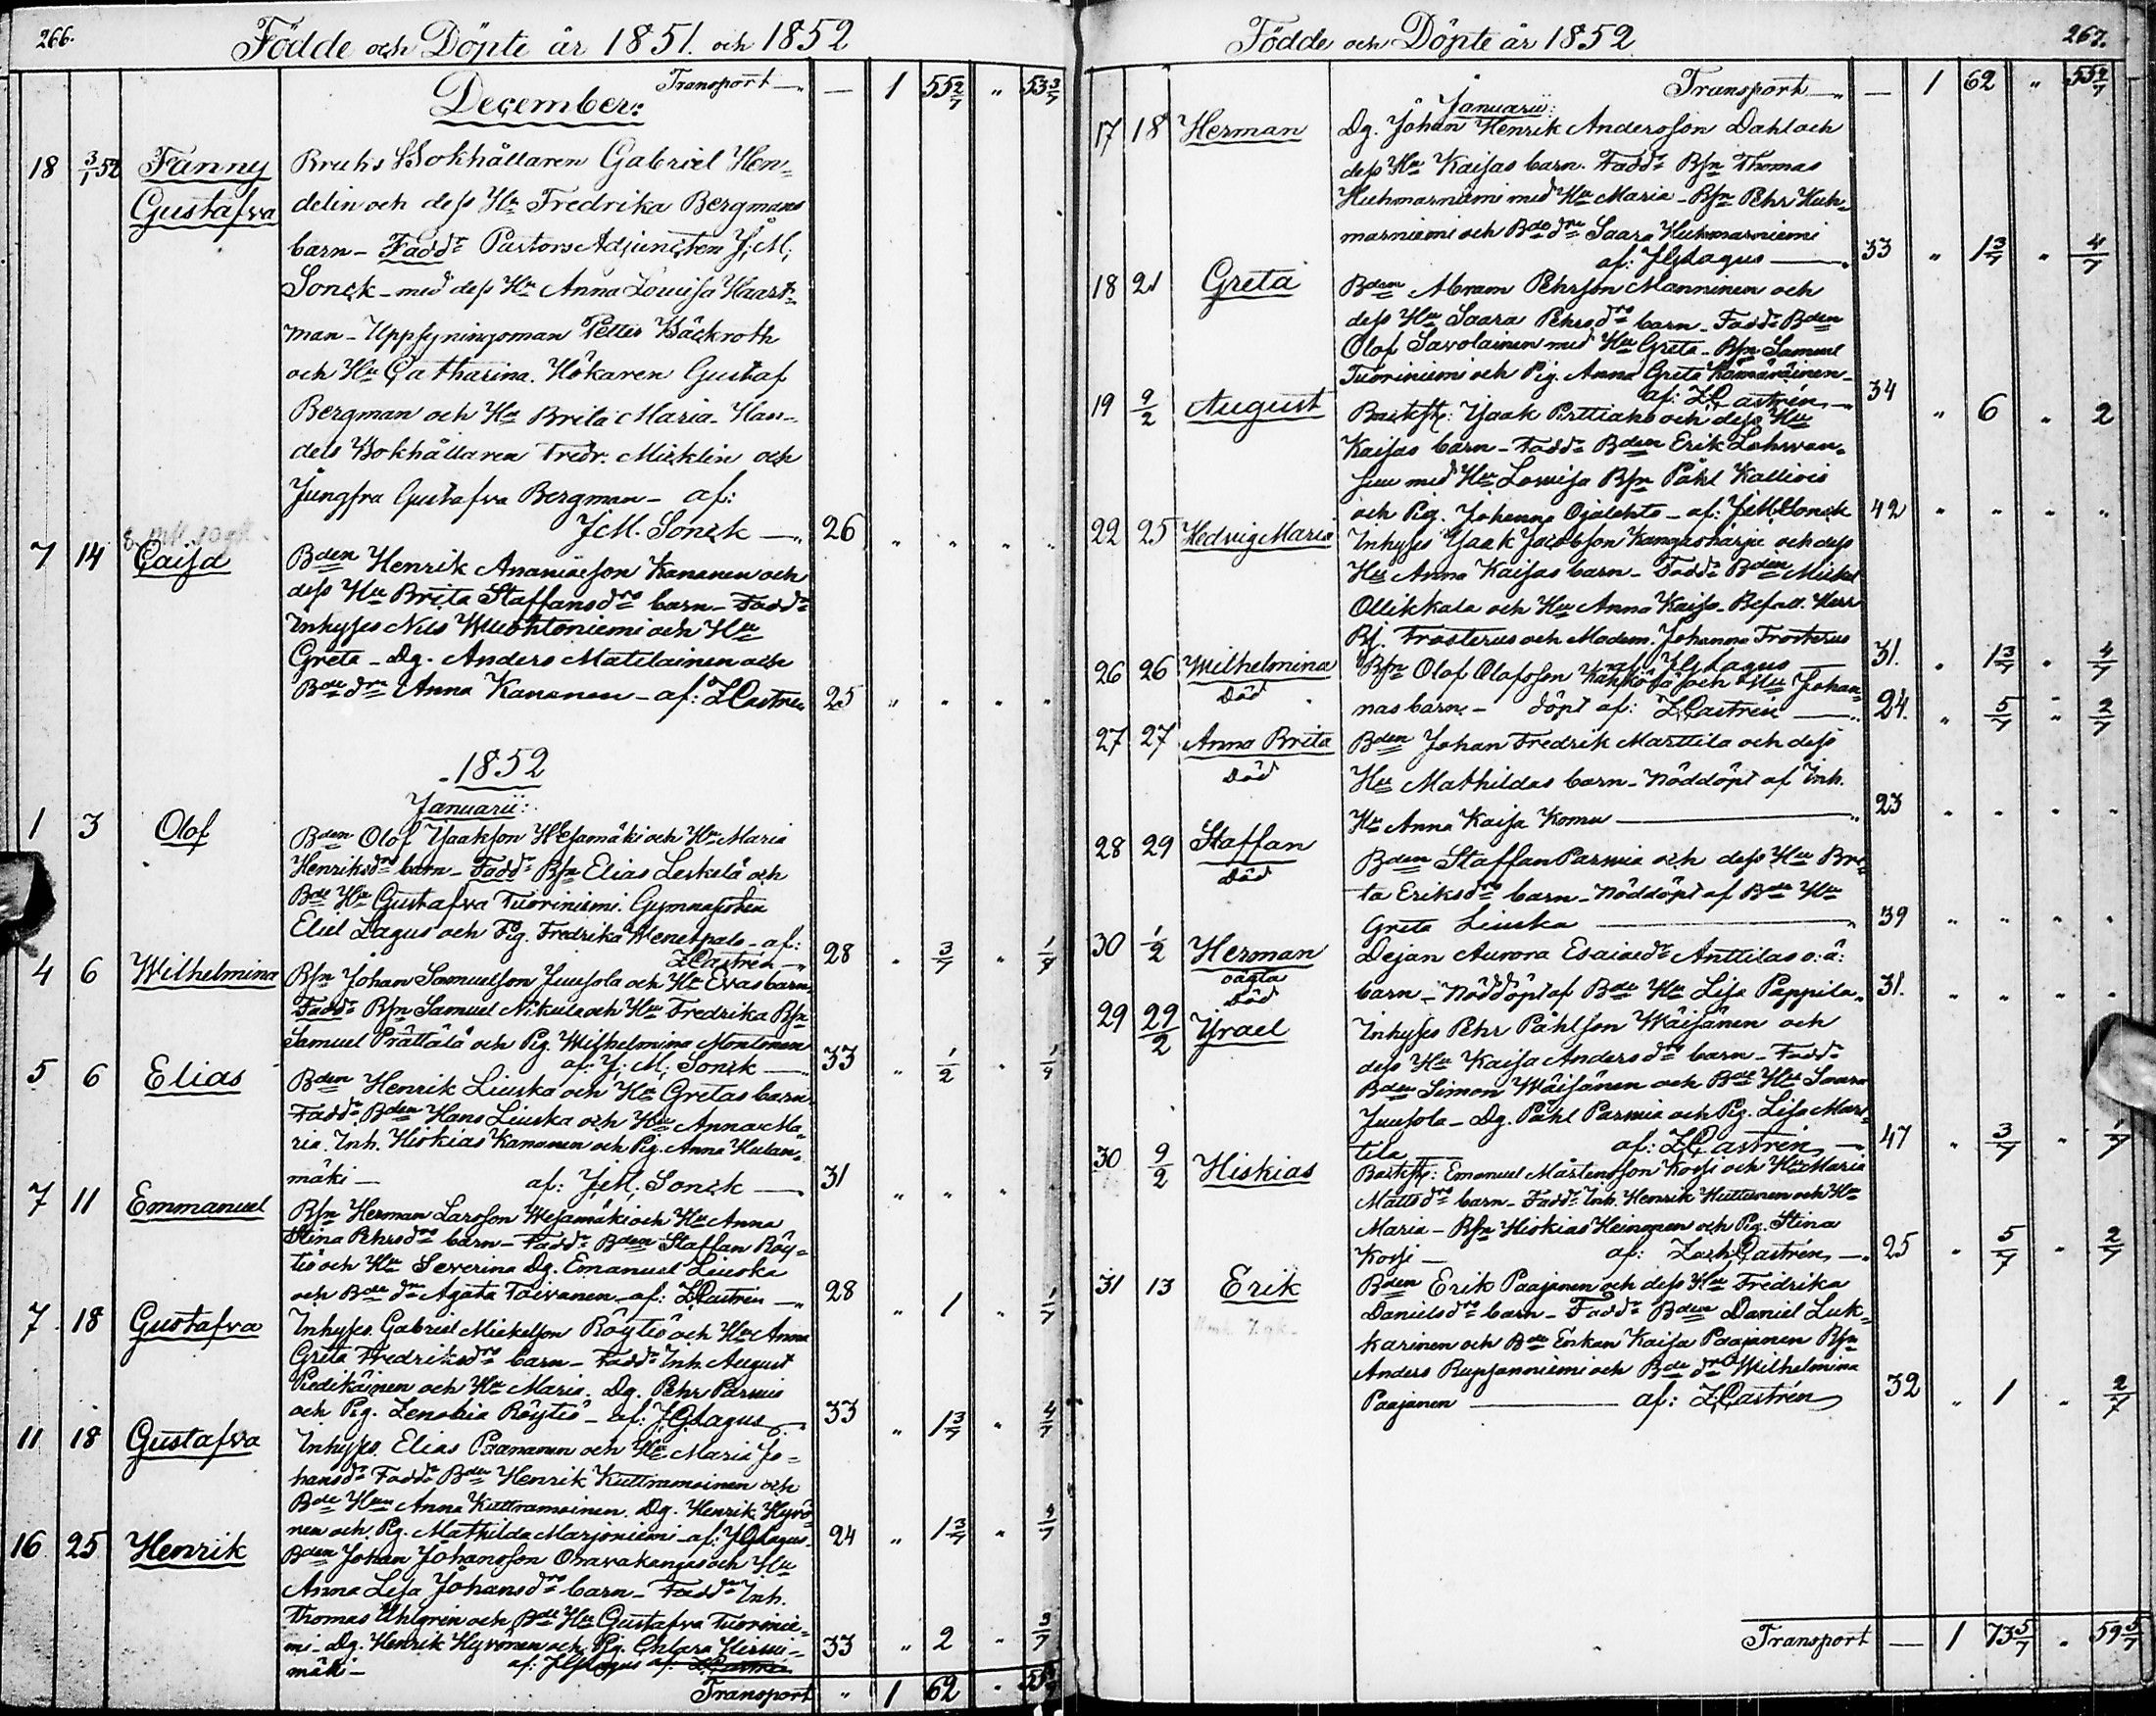 266.
Födde och Döpte år 1851. och 1852
Transport — 1 55 2/7 " 53 3/7
December:
18 3/1 52 Fanny Bruks Bokhållaren Gabriel Hen-
Gustafva delin och dess Hu Fredrika Bergmans
barn – Fadd: Pastors Adjuncten J. M.
Sonck – med dess Hu Anna Lovisa Haart-
man – Uppsyningsman Petter Bäckroth
och Hu Catharina. Hökaren Gustaf
Bergman och Hu Brita Maria – Han-
dels Bokhållaren Fredr. Micklin och
Jungfru Gustafva Bergman – af:
J. M. Sonck — 26 " " " "
7 14 Caisa Bden Henrik Ananiæson Kananen och
dess Hu Brita Staffansdrs barn – Fadd:
Inhyses Nils Wuohtoniemi och Hu
Greta – Dg. Anders Matilainen och
Bde dn Anna Kananen – af: Z. Castren 25 " " " "
1852
Januarii:
1 3 Olof Bden Olof Isaakson Wesamäki och Hu Maria
Henriksdrs barn – Fadd: Bsn Elias Leskelä och
Bde Hu Gustafva Tuoriniemi. Gymnasisten
Eliel Lagus och Pig. Fredrika Wenetpalo – af:
Z. Castrén — 28 " 3/7 " 1/7
4 6 Wilhelmina Bsn Johan Samuelson Juusola och Hu Evas barn
Fadd: Bsn Samuel Nikula och Hu Fredrika Bsn
Samuel Prättälä och Pig. Wilhelmina Montonen
af: J. M. Sonck — 33 " 1/2 " 1/7
5 6 Elias Bden Henrik Liuska och Hu Gretas barn
Fadd: Bden Hans Liuska och Hu Anna Ma-
ria. Inh. Hiskias Kananen och Pig. Anna Hutan-
mäki – af: J. M. Sonck — 31 " " " "
7 11 Emmanuel Bsn Herman Larsson Wesamäki och Hu Anna
Stina Pehrsdrs barn – Fadd: Bden Staffan Röy-
tiö och Hu Severina Dg. Emanuel Liuska
och Bde dr Agata Toivanen – af: Z. Castrén — 28 " 1 " 1/7
7 18 Gustafva Inhyses Gabriel Mickelson Röytiö och Hu Anna
Greta Fredriksdrs barn – Fadd: Inh. August
Piedikäinen och Hu Maria. Dg. Pehr Parvia
och Pig. Zenobia Röytiö – af: J. G. Lagus 33 " 1 3/7 " 4/7
11 18 Gustafva Inhyses Elias Paananen och Hu Maria Jo-
hansdr Fadd: Bden Henrik Kuttramoinen och
Bde Hu Anna Kuttramoinen. Dg. Henrik Hyvö-
nen och Pig. Mathilda Marjoniemi – af: J. G. Lagus 24 " 1 3/7 " 4/7
16 25 Henrik Bden Johan Johansson Oravakangas och Hu
Anna Lisa Johansdrs barn – Fadd: Inh.
Thomas Uhlgrén och Bde Hu Gustafva Tuorinie-
mi – Dg. Henrik Hyvönen och Pig. Chlara Hirvi-
mäki – af: J. G. Lagus af: Z. Castrén 33 " 2 " 3/7
Transport " 1 62 "
Födde och Döpte år 1852
267.
Transport — 1 62 " 55 2/7
Januarii:
17 18 Herman Dg. Johan Henrik Andersson Dahl och
dess Hu Kaisas barn. Fadd: Bsn Thomas
Huhmarniemi med Hu Maria – Bsn Pehr Huh-
marniemi och Bde dn Saara Huhmarniemi
af: J. G. Lagus — 33 " 1 3/7 " 4/7
18 21 Greta Bden Abram Pehrson Manninen och
dess Hu Saara Pehrsdrs barn – Fadd: Bden
Olof Savolainen med Hu Greta – Bsn Samuel
Tuoriniemi och Pig. Anna Greta Kämäräinen –
af: Z. Castrén — 34 " 6 " 2
19 9/2 August Backst: Isaak Pirttiaho och dess Hu
Kaisas barn – Fadd: Bden Erik Lohwan-
suu med Hu Lovisa Bsn Påhl Kalliois
och Pig. Johanna Ojalehto – af: J. M. Sonck 42 " " " "
22 25 Hedvig Maria Inhyses Isaak Jacobson Kangasharju och dess
Hu Anna Kaisas barn – Fadd: Bden Mickel
Ollikkala och Hu Anna Kaisa. Befall. Herr
Bj. Frosterus och Madem. Johanna Frosterus
af: J. G. Lagus — 31. " 1 3/7 " 4/7
26 26 Wilhelmina Bsn Olof Olofsson och Hu Johan-
Död nas barn – döpt af: Z. Castrén — 24. " 5/7 " 2/7
27 27 Anna Brita Bden Johan Fredrik Marttila och dess
Död Hu Mathildas barn – Nöddöpt af Inh.
Hu Anna Kaisa Komu — 23 " " " "
28 29 Staffan Bden Staffan Parvia och dess Hu Bri-
Död ta Eriksdrs barn – Nöddöpt af Bde Hu
Greta Liuska — 39 " " " "
30 1/2 Herman Dejan Aurora Esaiædr Anttilas o: ä:
oägta barn – Nöddöpt af Bde Hu Lisa Pappila 31. " " " "
Död
29 29/2 Israel Inhyses Pehr Påhlson Wäisänen och
dess Hu Kaisa Andersdrs barn – Fadd:
Bden Simon Wäisänen och Bde Hu Saara
Juusola – Dg. Påhl Parvia och Pig. Lisa Mart-
tila af: Z. Castrén — 47 " 3/7 " 1/7
30 9/2 Hiskias Backst: Emanuel Mårtensson Korpi och Hu Maria
Mattsdrs barn – Fadd: Inh. Henrik Huttunen och Hu
Maria – Bsn Hiskias Heinonen och Pig. Stina
Korpi – af: Zach. Castrén — 25 " 5/7 " 2/7
31 13 Erik Bden Erik Paajanen och dess Hu Fredrika
Danielsdrs barn – Fadd: Bden Daniel Luk-
karinen och Bde Enkan Kaisa Paajanen Bsn
Anders Rupsanniemi och Bde dn Wilhelmina
Paajanen — af: Z. Castrén 32 " 1 " 2/7
Transport — 1 73 5/7 " 59 5/7